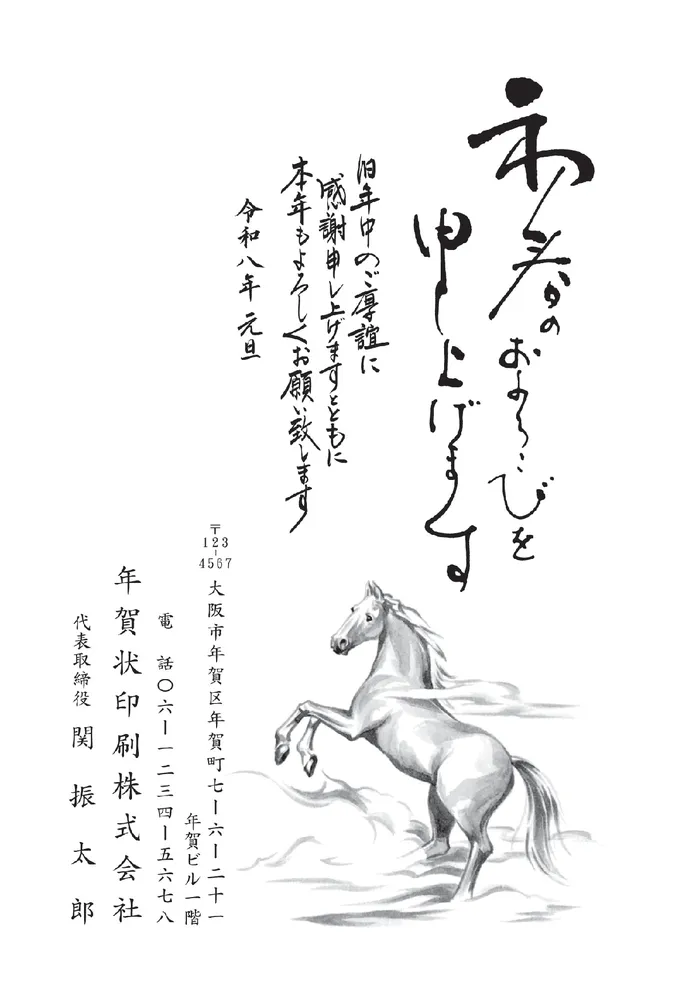 初春の
およろこびを
申し上げます
旧年中のご厚誼に
感謝申し上げますとともに
本年もよろしくお願い致します
令和八年 元旦
〒123-4567
大阪市年賀区年賀町七ー六ー二十一
年賀ビル一階
電話〇六ー一二三四ー五六七八
年賀状印刷株式会社
代表取締役 関振太郎